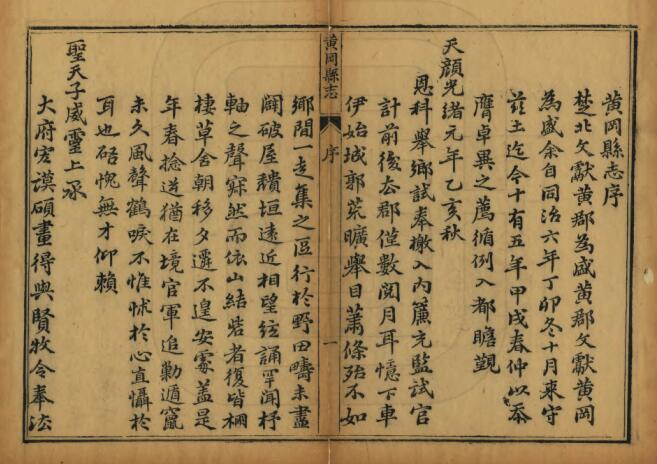 黄岡縣志序
楚北文獻黄郡為盛黄郡文獻黄岡
為盛余自同治六年丁卯冬十月來守
茲土迄今十有五年甲戌春仲以忝
膺卓異之薦循例入都瞻覲
天顔光緒元年乙亥秋
恩科舉鄉試奉檄入內簾充監試官
計前後去郡僅數閲月耳憶下車
伊始城郭荒曠舉目蕭條殆不如
黄岡縣志
序
一
鄉間一走集之區行於野田疇未盡
闢破屋穨垣遠近相望絃誦罕聞杼
軸之聲寂然而依山結砦者復皆棚
棲草舍朝移夕遷不遑安處蓋是
年春捻逆猶在境官軍追勦遁竄
未久風聲鶴唳不惟怵於心直懾於
耳也碚愧無才仰賴
聖天子威靈上承
大府宏謨碩畫得與賢牧令奉法